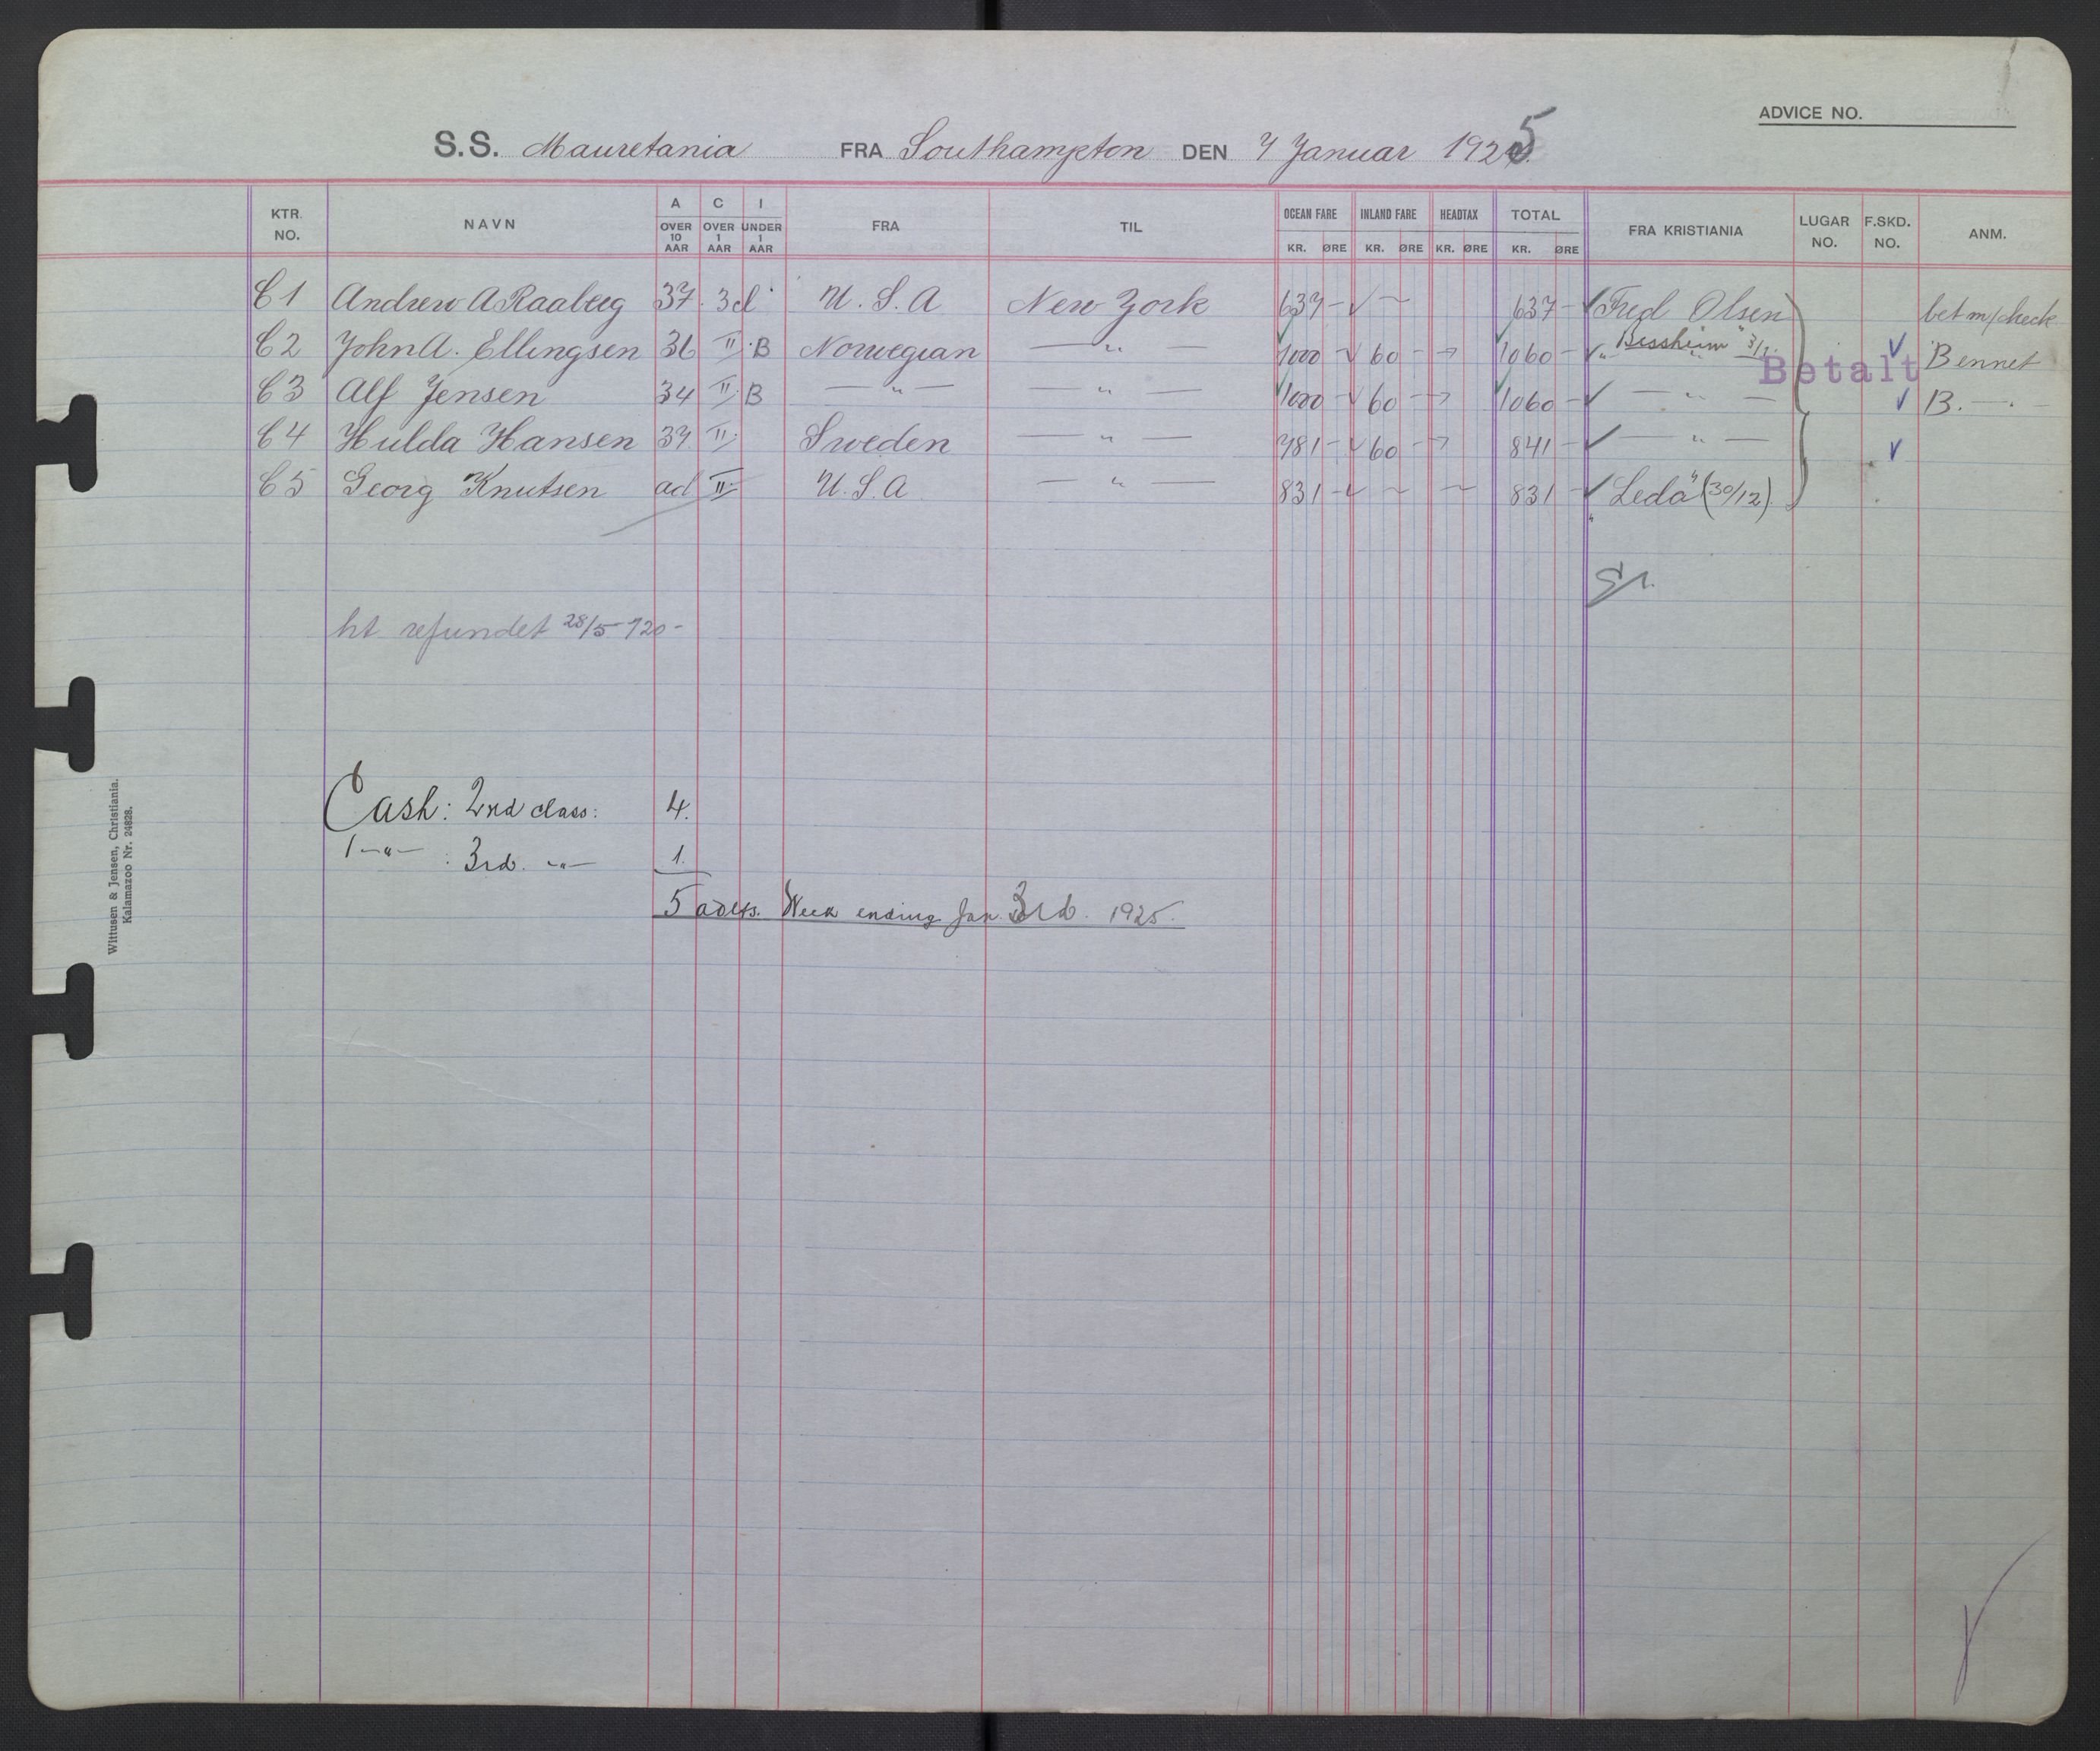 ADVICE NO.
S.S. Mauretania FRA Southampton DEN 7 Januar 1925
KTR. NO. NAVN A OVER 10 AAR C OVER 1 AAR I UNDER 1 AAR FRA TIL OCEAN FARE KR. ØRE INLAND FARE KR. ØRE HEADTAX KR. ØRE TOTAL KR. ØRE FRA KRISTIANIA LUGAR NO. F.SKD. NO. ANM.
C1 Andrew A 37 3cl U.S.A New York 637 - 637 - Fred Olsen bet m/check
"Bessheim" 3/1.
C2 John A. Ellingsen 36 II B Norwegian — " — 1000 - 60 - 1060 - — " — Bennet
Betalt
C3 Alf Jensen 34 II B — " — — " — 1000 - 60 - 1060 - — " — B. — " —
C4 Hulda Hansen 37 II Sweden — " — 781 - 60 - 841 - — " —
C5 Georg Knutsen ad II U.S.A — " — 831 - 831 - "Leda" (30/12)
ht refundet 28/5 - 120 -
Cash: 2nd class: 4.
1 — " — : 3rd. — " — 1.
5 adlts. Week ending Jan. 3rd. 1925.
Wittusen & Jensen, Christiania.
Kalamazoo Nr. 24828.